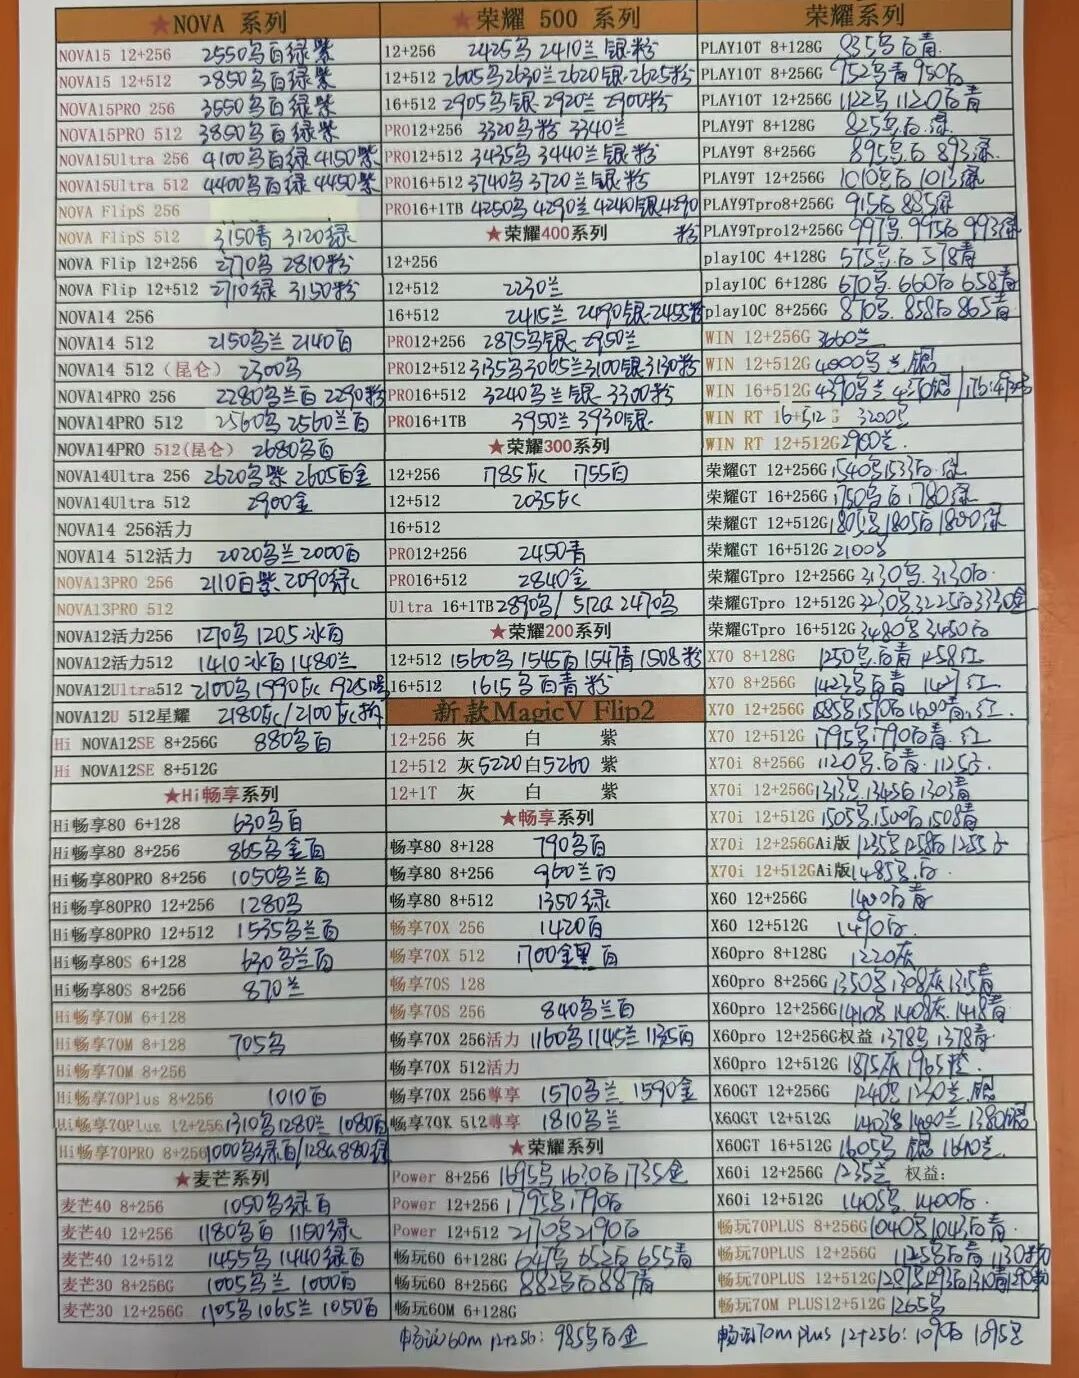 ★NOVA 系列
NOVA15 12+256 2550乌白绿紫
NOVA15 12+512 2850乌白绿紫
NOVA15PRO 256 3550乌白绿紫
NOVA15PRO 512 3850乌白绿紫
NOVA15Ultra 256 4100乌白绿4150紫
NOVA15Ultra 512 4400乌白绿4450紫
NOVA FlipS 256
NOVA FlipS 512 3150青 3120绿
NOVA Flip 12+256 2770乌 2810粉
NOVA Flip 12+512 2710绿 3150粉
NOVA14 256
NOVA14 512 2150乌兰 2140白
NOVA14 512（昆仑） 2300乌
NOVA14PRO 256 2280乌兰白 2290粉
NOVA14PRO 512 2560乌 2560兰白
NOVA14PRO 512(昆仑） 2680乌白
NOVA14Ultra 256 2620乌紫 2605白金
NOVA14Ultra 512 2900金
NOVA14 256活力
NOVA14 512活力 2020乌兰2000白
NOVA13PRO 256 2110白紫2090绿
NOVA13PRO 512
NOVA12活力256 1270乌1205冰白
NOVA12活力512 1410冰白1480兰
NOVA12Ultra512 2100乌1990灰
NOVA12U 512星耀 2180灰/2100灰粉
Hi NOVA12SE 8+256G 880乌白
Hi NOVA12SE 8+512G
★Hi畅享系列
Hi畅享80 6+128 630乌白
Hi畅享80 8+256 865乌金白
Hi畅享80PRO 8+256 1050乌兰白
Hi畅享80PRO 12+256 1280乌
Hi畅享80PRO 12+512 1535乌兰白
Hi畅享80S 6+128 630乌兰白
Hi畅享80S 8+256 870兰
Hi畅享70M 6+128
Hi畅享70M 8+128 705乌
Hi畅享70M 8+256
Hi畅享70Plus 8+256 1010白
Hi畅享70Plus 12+256 1310乌1280兰 1080白
Hi畅享70PRO 8+256 1000乌绿白/128G 880绿
★麦芒系列
麦芒40 8+256 1050乌绿白
麦芒40 12+256 1180乌白 1150绿
麦芒40 12+512 1455乌1440绿白
麦芒30 8+256G 1005乌兰 1000白
麦芒30 12+256G 1105乌1065兰 1050白
★荣耀 500 系列
12+256 2425乌 2410兰 银·粉
12+512 2605乌2630兰2620银·2625粉
16+512 2905乌·银·2920兰 2900粉
PRO12+256 3320乌粉 3340兰
PRO12+512 3435乌 3440兰银·粉
PRO16+512 3740乌 3720兰银·粉
PRO16+1TB 4250乌 4290兰 4240银·4290粉
★荣耀400系列
12+256
12+512 2230兰
16+512 2415兰 2490银·2455粉
PRO12+256 2875乌银·2950兰
PRO12+512 3135乌3065兰3100银3130粉
PRO16+512 3240乌兰银·3300粉
PRO16+1TB 3950兰 3930银·
★荣耀300系列
12+256 1785灰 1755白
12+512 2035灰
16+512
PRO12+256 2450青
PRO16+512 2840金
Ultra 16+1TB 2890乌/512G 2470乌
★荣耀200系列
12+512 1560乌1545白1547青1508粉
16+512 1615乌白青粉
新款MagicV Flip2
12+256 灰 白 紫
12+512 灰5220白5260 紫
12+1T 灰 白 紫
★畅享系列
畅享80 8+128 790乌白
畅享80 8+256 960兰白
畅享80 8+512 1350绿
畅享70X 256 1420白
畅享70X 512 1700金黑白
畅享70S 128
畅享70S 256 840乌兰白
畅享70X 256活力 1160乌1145兰1135白
畅享70X 512活力
畅享70X 256尊享 1570乌兰 1590金
畅享70X 512尊享 1810乌兰
★荣耀系列
Power 8+256 1695乌1630白1735金
Power 12+256 1795乌1790白
Power 12+512 2170乌2190白
畅玩60 6+128G 647乌 652白 655青
畅玩60 8+256G 882乌白887青
畅玩60M 6+128G
畅玩60m 12+256：985乌白金
荣耀系列
PLAY10T 8+128G 935乌白青
PLAY10T 8+256G 952乌青 950白
PLAY10T 12+256G 1122乌 1120白青
PLAY9T 8+128G 825乌白·绿
PLAY9T 8+256G 895乌·白 893绿
PLAY9T 12+256G 1010乌白 1013绿
PLAY9Tpro8+256G 915白 885绿
PLAY9Tpro12+256G 997乌·995白 993绿
play10C 4+128G 575乌·白578青
play10C 6+128G 670乌·660白 658青
play10C 8+256G 870乌·858白 865青
WIN 12+256G 3660兰
WIN 12+512G 4000乌兰·银
WIN 16+512G 4390乌兰
WIN RT 16+512 G 3200乌
WIN RT 12+512G 2900兰·
荣耀GT 12+256G 1540乌1533白·绿
荣耀GT 16+256G 1750乌白1780绿
荣耀GT 12+512G 1805乌1805白1800绿
荣耀GT 16+512G 2100乌
荣耀GTpro 12+256G 3130乌·3130白·
荣耀GTpro 12+512G 3230乌3225白3330金
荣耀GTpro 16+512G 3480乌3450白
X70 8+128G 1250乌·白青 1258红
X70 8+256G 1423乌白青 1427红
X70 12+256G 1585乌1590白1600青·红
X70 12+512G 1795乌1790白青·红
X70i 8+256G 1120乌·白青·1125
X70i 12+256G 1313乌·1345白1303青
X70i 12+512G 1505乌·1500白1508青
X70i 12+256GAi版 1235乌1258白1255
X70i 12+512GAi版 1485乌·白
X60 12+256G 1400白青
X60 12+512G 1490白·
X60pro 8+128G 1220灰
X60pro 8+256G 1350乌1308灰1315青
X60pro 12+256G 1410乌1408灰·1418青
X60pro 12+256G权益 1378乌1378青
X60pro 12+512G 1875灰1965
X60GT 12+256G 1240乌1250兰·银
X60GT 12+512G 1403乌1400兰1380银
X60GT 16+512G 1605乌 银 1640兰
X60i 12+256G 1235兰 权益:
X60i 12+512G 1405乌·1400白·
畅玩70PLUS 8+256G 1040乌1043白青·
畅玩70PLUS 12+256G 1125乌白青1130粉
畅玩70PLUS 12+512G 1287乌1293白1310青1290粉
畅玩70M PLUS12+512G 1265乌
畅玩70m plus 12+256：1090白 1095乌